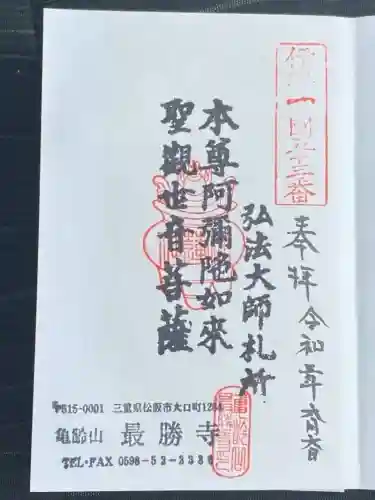 奉拝 令和 年 月 日
弘法大師札所
本尊阿彌陀如來
聖觀世音菩薩
〒515-0001 三重県松阪市大口町1264
亀齢山 最勝寺
TEL・FAX 0598-52-3330